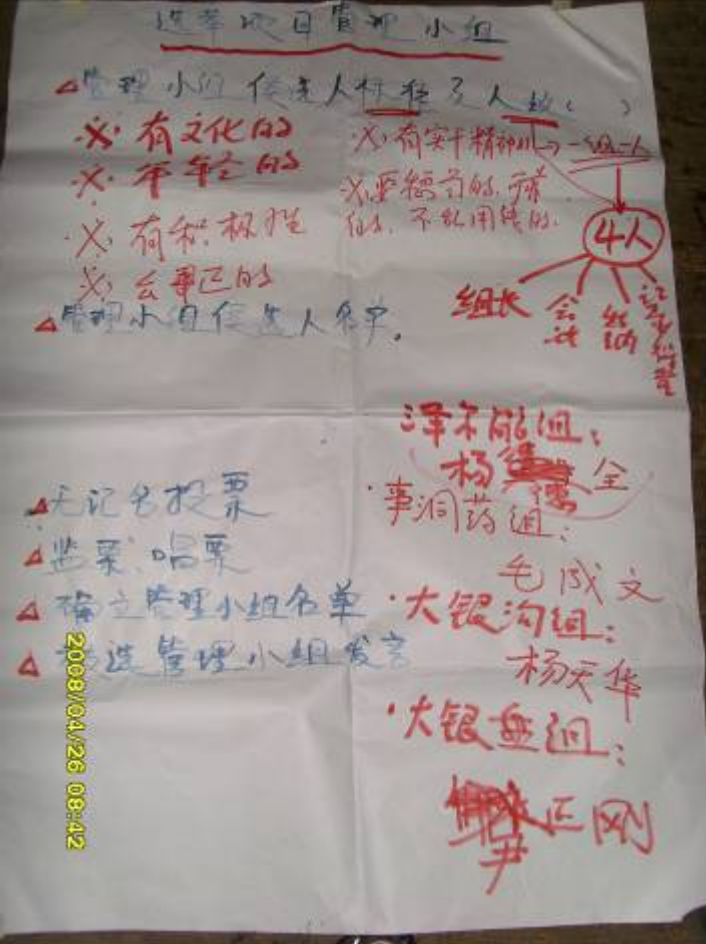 选举项目管理小组
△管理小组候选人标准及人数( )
※有文化的
※年轻的
※有积极性
※公事正的
※有实干精神的 → 一组一人
※要德 的,
的,不乱用钱的.
4人
组长 会计 出纳 记录
△管理小组候选人名单.
△无记名投票
△监票、唱票
△确立管理小组名单
△ 选管理小组发言
组:
杨 德全
·事洞药组:
毛成文
·大银沟组:
杨天华
·大银盘组:
尹正刚
2008/04/26 08:42